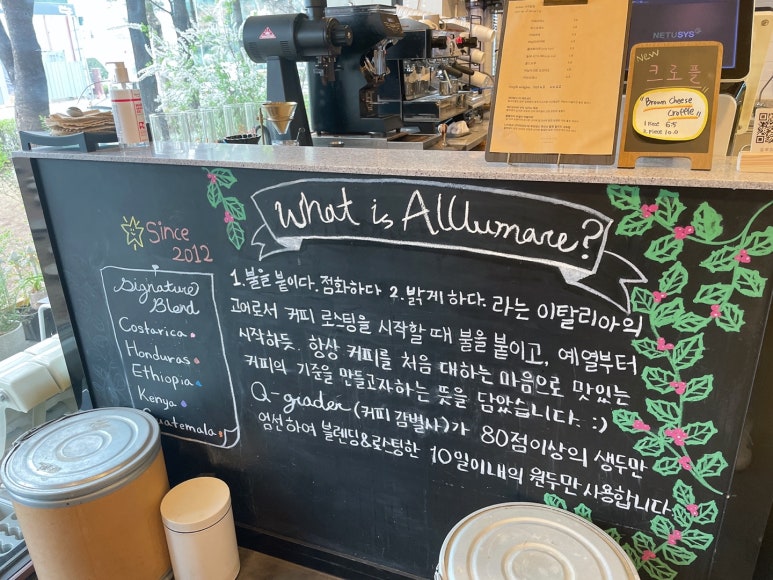 NETUSYS
New
크로플
"Brown Cheese
Croffle"
1 Piece 6.5
2 Piece 10.0
What is Alllumare?
Since
2012
Signature
Blend
Costarica
Honduras
Ethiopia
Kenya
Guatemala
1. 불을 붙이다. 점화하다 2. 밝게 하다. 라는 이탈리아의
고어로서 커피 로스팅을 시작할 때 불을 붙이고, 예열부터
시작하듯. 항상 커피를 처음 대하는 마음으로 맛있는
커피의 기준을 만들고자하는 뜻을 담았습니다. :)
Q-grader (커피 감별사)가 80점이상의 생두만
엄선하여 블렌딩&로스팅한 10일이내의 원두만 사용합니다